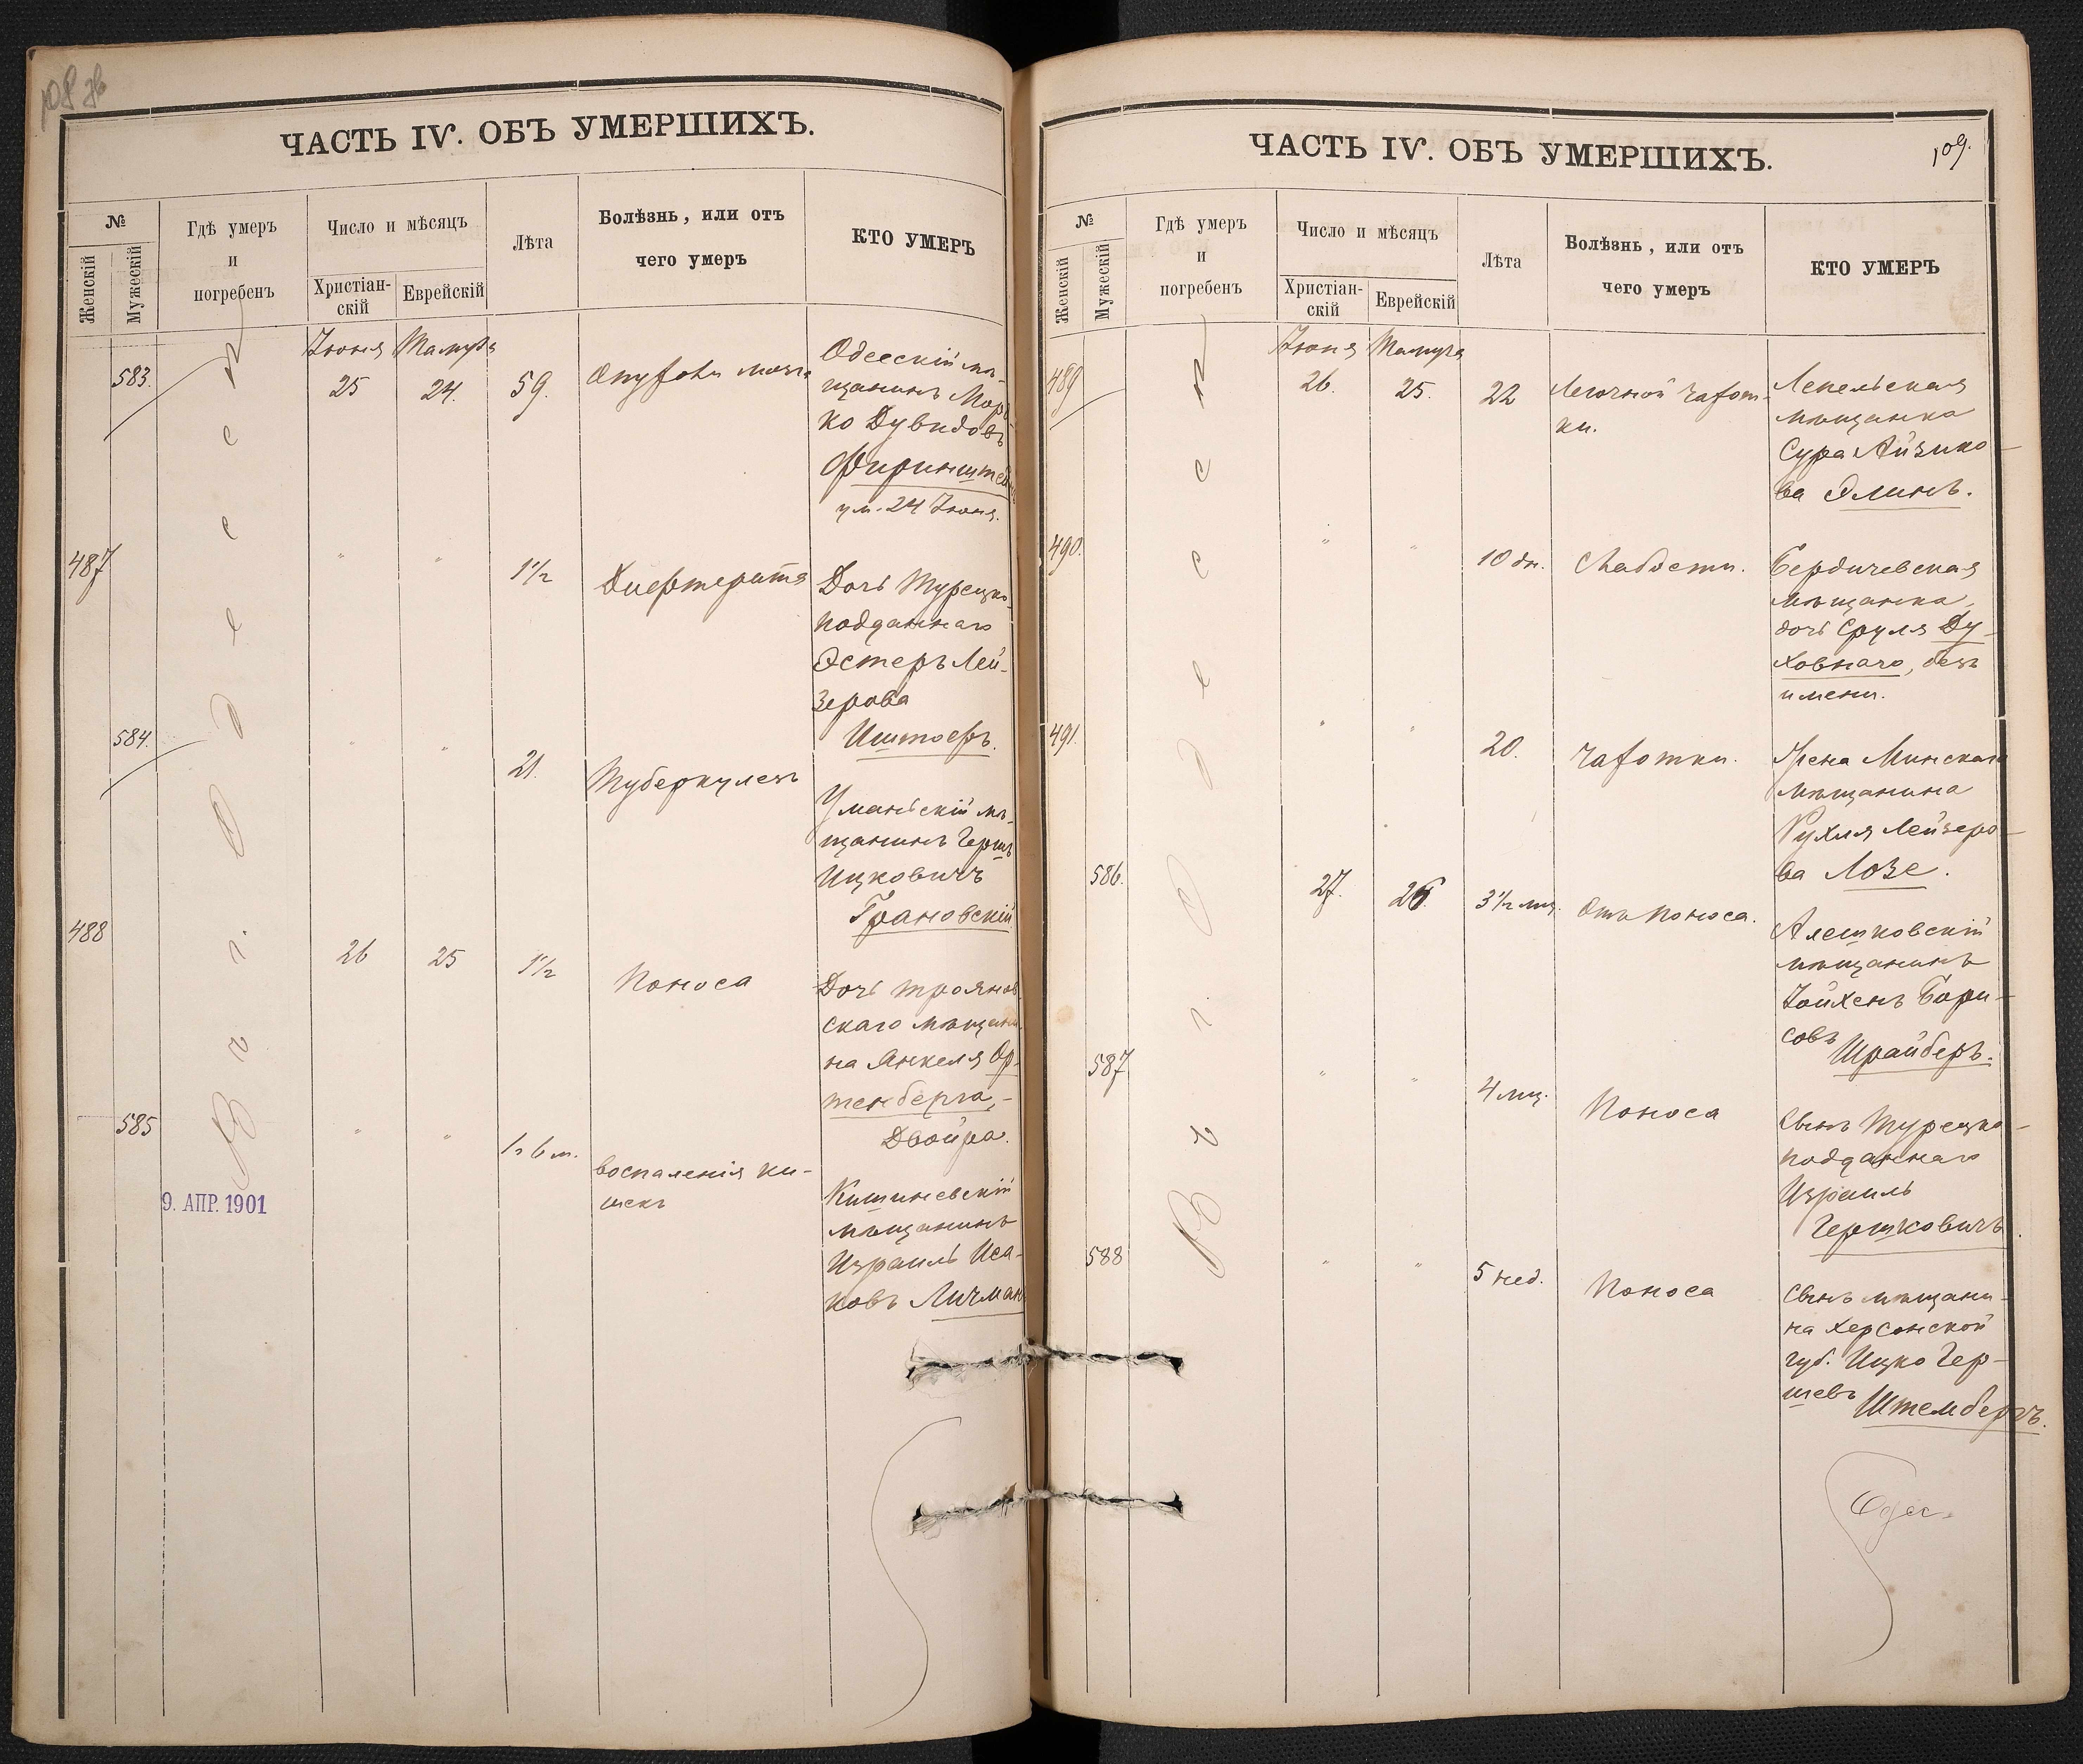 108 зв
ЧАСТЬ IV. ОБЪ УМЕРШИХЪ.
№
Женскій
Мужескій
Гдѣ умеръ
и
погребенъ
Число и мѣсяцъ
Христіан-
скій
Еврейскій
Лѣта
Болѣзнь, или отъ
чего умеръ
КТО УМЕРЪ
Въ г. Одессѣ
Іюня
Тамуза
583.
25
24.
59.
Опухоли мозга
Одесскій мѣ-
щанинъ Мор
ко Дувидовъ
Фиринштей
ум. 24 Іюня.
487
"
"
1 1/2
Дифтерита
Дочь Турецко-
подданнаго
Эстеръ Лей-
зерова
Иштоеръ.
584.
"
"
21.
Туберкулезъ
Уманьскій мѣ-
щанинъ Гершъ
Ицковичъ
Грановскій
488
26
25
1 1/2
Поноса
Дочь Троянов
скаго мѣщани
на Янкеля Ор-
тенберга, -
Двойра.
585
"
"
1 г 6 м.
воспаленія ки-
шекъ
Кишиневскій
мѣщанинъ
Израиль Иса-
ковъ Личман
9. АПР. 1901
ЧАСТЬ IV. ОБЪ УМЕРШИХЪ.
109.
№
Женскій
Мужескій
Гдѣ умеръ
и
погребенъ
Число и мѣсяцъ
Христіан-
скій
Еврейскій
Лѣта
Болѣзнь, или отъ
чего умеръ
КТО УМЕРЪ
Въ г. Одессѣ
Іюня
Тамуза
489
26.
25.
22
Легочной чахот-
ки.
Лепельская
мѣщанка
Сура Айзико-
ва Элинъ.
490.
"
"
10 дн.
Слабости.
Бердичевская
мѣщанка,
дочь Сруля Ду-
ховнаго, безъ
имени.
491.
"
"
20.
Чахотки.
Жена Минскаго
мѣщанина
Рухля Лейзеро-
ва Лозе.
586.
27.
26.
3 1/2 мц.
Отъ поноса.
Алешковскій
мѣщанинъ
Іойхенъ Бори-
совъ
Шрайберъ.
587
"
"
4 мц.
Поноса
Сынъ Турецко-
подданнаго
Израиль
Гершковичъ.
588
"
"
5 нед.
Поноса
Сынъ мѣщани-
на Херсонской
губ. Ицко Гер-
шевъ
Штембергъ.